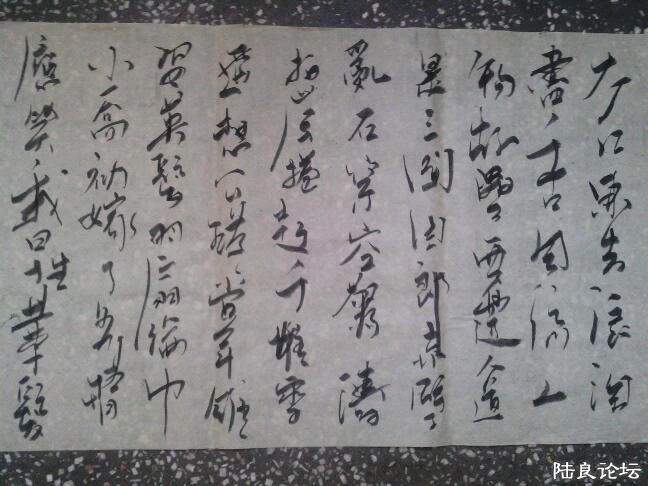 大江東去浪淘
盡千古風流人
物故壘西邊人道
是三國周郎赤壁
亂石穿空驚濤
拍岸捲起千堆雪
遙想公瑾當年雄
姿英發羽扇綸巾
小喬初嫁了多情
應笑我早生華髮
陆良论坛